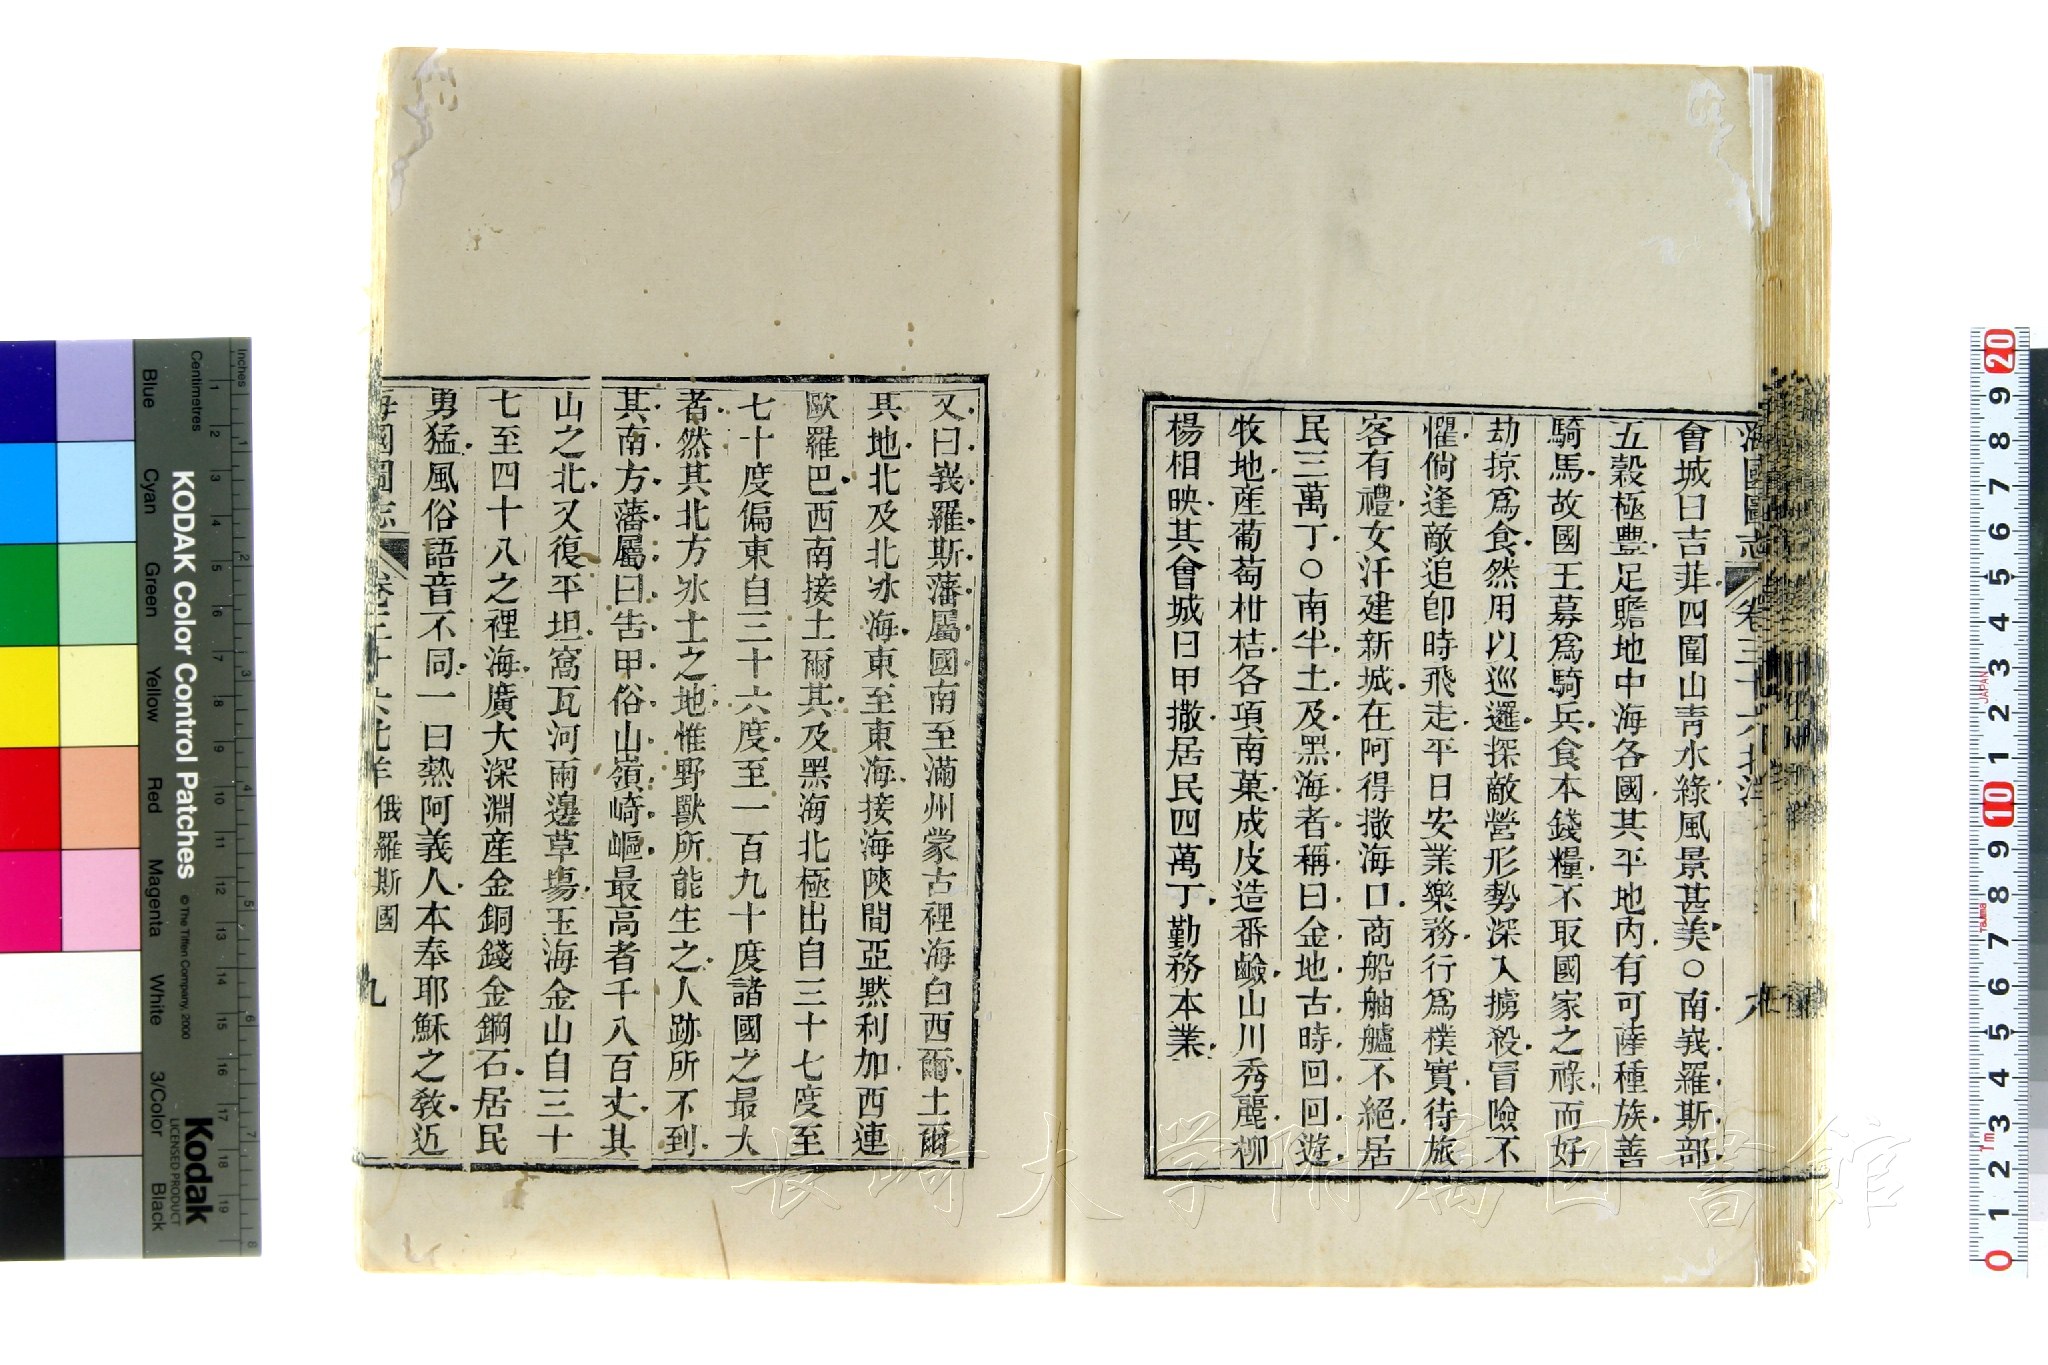 海國圖志 卷三十六 北洋
會城曰吉菲四圍山青水綠風景甚美○南峩羅斯部
五穀極豐足贍地中海各國其平地内有可薩種族善
騎馬故國王募爲騎兵食本錢糧不取國家之祿而好
劫掠爲食然用以巡邏探敵營形勢深入擄殺冒險不
懼倘逢敵追卽時飛走平日安業樂務行爲樸實待旅
客有禮女汗建新城在阿得撒海口商船舳艫不絕居
民三萬丁○南半土及黑海者稱曰金地古時回回遊
牧地産葡萄柑桔各項南菓成皮造番鹼山川秀麗柳
楊相映其會城曰甲撒居民四萬丁勤務本業
又曰峩羅斯藩屬國南至滿州蒙古裡海白西爾土爾
其地北及北氷海東至東海接海陝間亞黙利加西連
歐羅巴西南接土爾其及黑海北極出自三十七度至
七十度偏東自三十六度至一百九十度諸國之最大
者然其北方氷土之地惟野獸所能生之人跡所不到
其南方藩屬曰吿甲俗山嶺崎嶇最高者千八百丈其
山之北又復平坦窩瓦河兩邊草塲玉海金山自三十
七至四十八之裡海廣大深淵産金銅錢金鋼石居民
勇猛風俗語音不同一曰熱阿義人本奉耶穌之教近
海國圖志 卷三十六 北洋 俄羅斯國 九
KODAK Color Control Patches
© The Tiffen Company, 2000
Kodak
LICENSED PRODUCT
Inches
Centimetres
Blue Cyan Green Yellow Red Magenta White 3/Color Black
長崎大学附属図書館